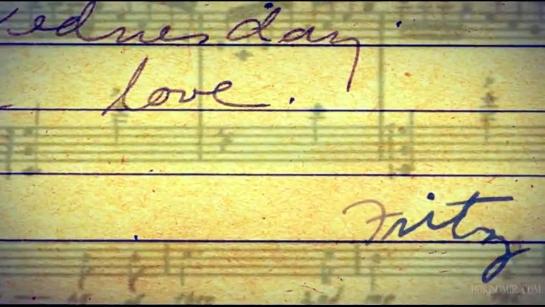 Wednesday.
love.
Fritz